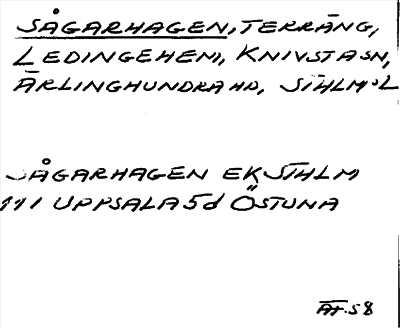 SÅGARHAGEN, TERRÄNG,
LEDINGEHEM, KNIVSTA SN,
ÄRLINGHUNDRA HD, STHLMS L
SÅGARHAGEN EK STHLM
111 UPPSALA 5d ÖSTUNA
ÄT. 58